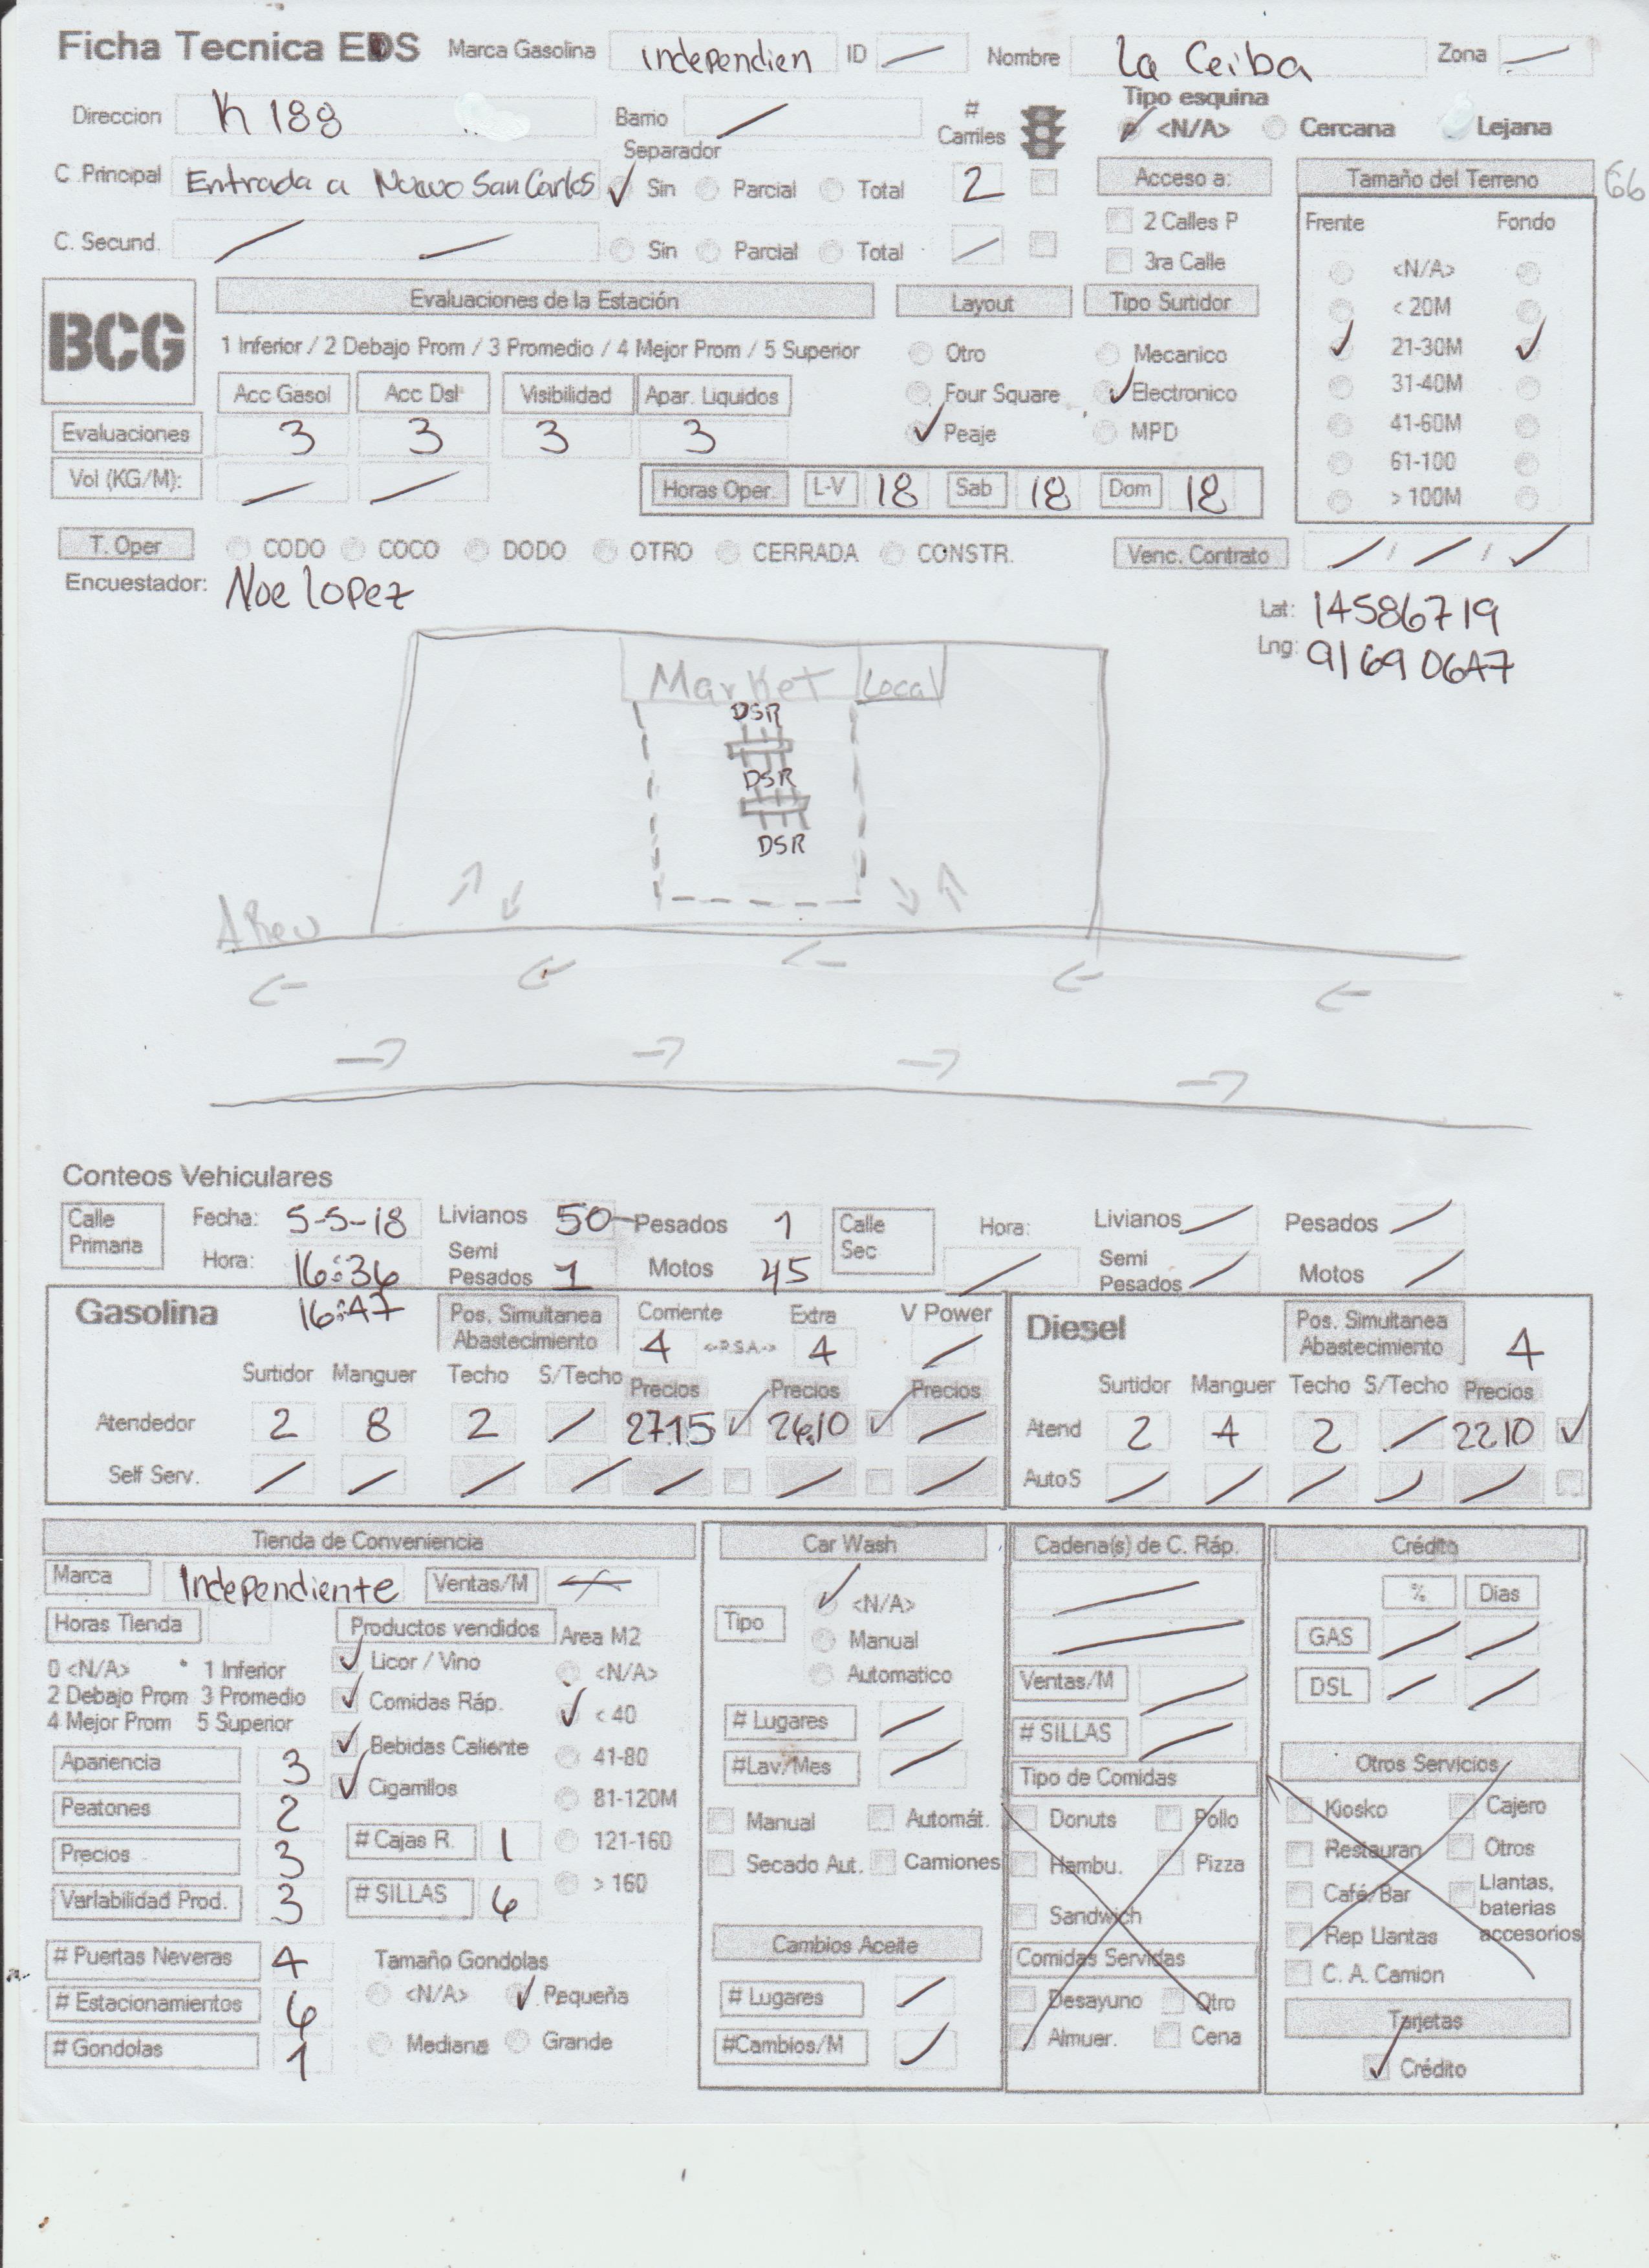 Ficha Tecnica EDS Marca Gasolina independien ID / Nombre La Ceiba Zona /
Direccion K 188 Barrio / # Carriles Tipo esquina <N/A> Cercana Lejana
C Principal Entrada a Nuevo San Carlos Separador Sin Parcial Total 2 Acceso a: Tamaño del Terreno 66
2 Calles P Frente Fondo
C. Secund. / / Sin Parcial Total / 3ra Calle <N/A>
BCG Evaluaciones de la Estación Layout Tipo Surtidor < 20M
1 Inferior / 2 Debajo Prom / 3 Promedio / 4 Mejor Prom / 5 Superior Otro Mecanico 21-30M
Acc Gasol Acc Dsl Visibilidad Apar. Liquidos Four Square Electronico 31-40M
Evaluaciones 3 3 3 3 Peaje MPD 41-60M
61-100
Vol (KG/M): / / Horas Oper. L-V 18 Sab 18 Dom 18 > 100M
T. Oper CODO COCO DODO OTRO CERRADA CONSTR. Venc. Contrato / / / / /
Encuestador: Noe lopez
Lat: 14586719
Lng: 91690647
Market Local
DSR
DSR
DSR
AReu
Conteos Vehiculares
Calle Primaria Fecha: 5-5-18 Livianos 50 Pesados 1 Calle Sec Hora: / Livianos / Pesados /
Hora: 16:36 Semi Pesados 1 Motos 45 Semi Pesados / Motos /
Gasolina 16:47 Pos. Simultanea Abastecimiento Corriente 4 <-P.S.A.-> Extra 4 V Power / Diesel Pos. Simultanea Abastecimiento 4
Surtidor Manguer Techo S/Techo Precios Precios Precios Surtidor Manguer Techo S/Techo Precios
Atendedor 2 8 2 / 27.15 26.10 / Atend 2 4 2 / 22.10
Self Serv. / / / / / / / Auto S / / / / /
Tienda de Conveniencia Car Wash Cadena(s) de C. Ráp. Crédito
Marca Independiente Ventas/M % Dias
Horas Tienda Productos vendidos Area M2 Tipo <N/A> GAS / /
Manual
0 <N/A> 1 Inferior Licor / Vino <N/A> Automatico Ventas/M / DSL / /
2 Debajo Prom 3 Promedio Comidas Ráp. < 40 # Lugares / # SILLAS /
4 Mejor Prom 5 Superior Bebidas Caliente 41-80 #Lav/Mes / Tipo de Comidas Otros Servicios
Apariencia 3 Cigarrillos 81-120M Manual Automát. Donuts Pollo Kiosko Cajero
Peatones 2 # Cajas R. 1 121-160 Secado Aut. Camiones Hambu. Pizza Restauran Otros
Precios 3 > 160 Café/Bar Llantas, baterias accesorios
Variabilidad Prod. 3 # SILLAS 6 Sandwich Rep Llantas
# Puertas Neveras 4 Tamaño Gondolas Cambios Aceite Comidas Servidas C. A. Camion
# Estacionamientos 6 <N/A> Pequeña # Lugares / Desayuno Otro Tarjetas
# Gondolas 1 Mediana Grande #Cambios/M / Almuer. Cena Crédito